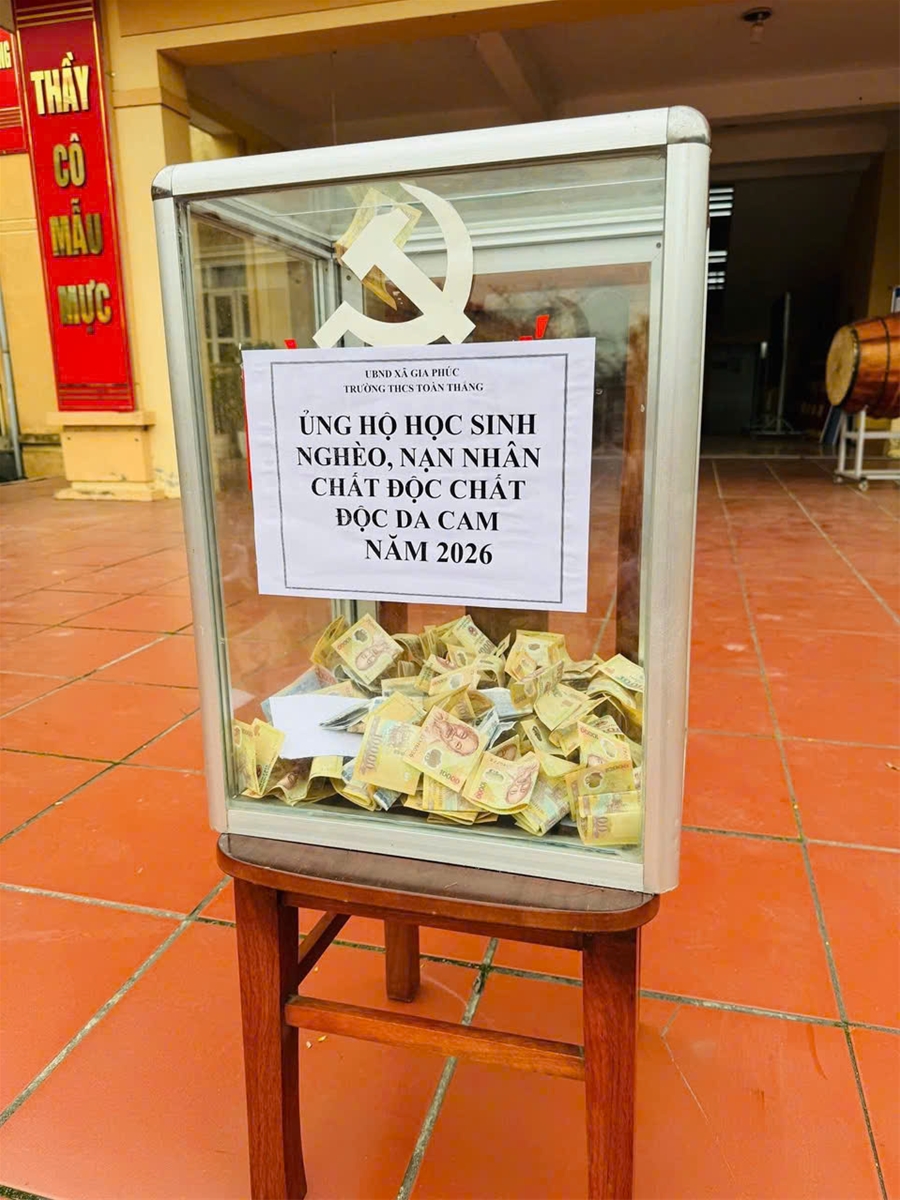 THẦY
CÔ
MẪU
MỰC
UBND XÃ GIA PHÚC
TRƯỜNG THCS TOÀN THẮNG
ỦNG HỘ HỌC SINH
NGHÈO, NẠN NHÂN
CHẤT ĐỘC CHẤT
ĐỘC DA CAM
NĂM 2026
10000